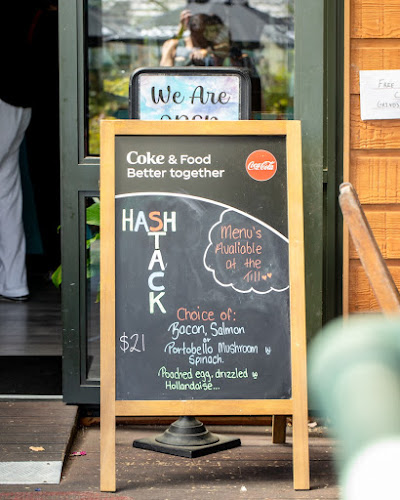 We Are
open
Coke & Food
Better together
Coca-Cola
HASH
STACK
Menu's
Avaliable
at the
Till
Choice of:
Bacon, Salmon
or
Portobello Mushroom
Spinach.
$21
Poached egg, drizzled
Hollandaise...
FREE